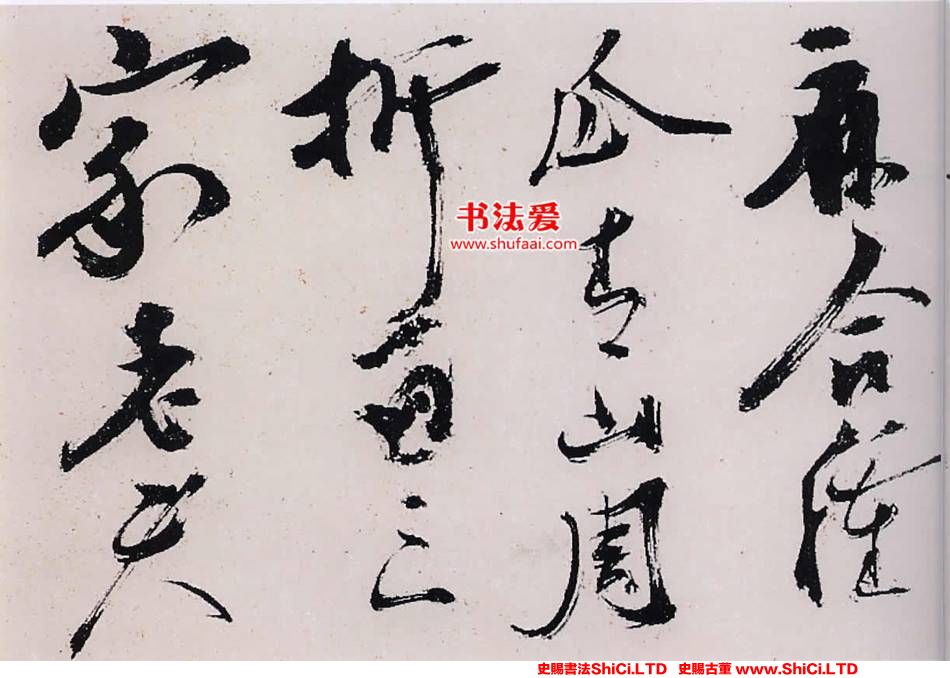 麻合羅
瓜青山周
折三
家老夫
书法爱
www.shufaai.com
史賜書法ShiCi.LTD 史賜古董 www.ShiCi.LTD